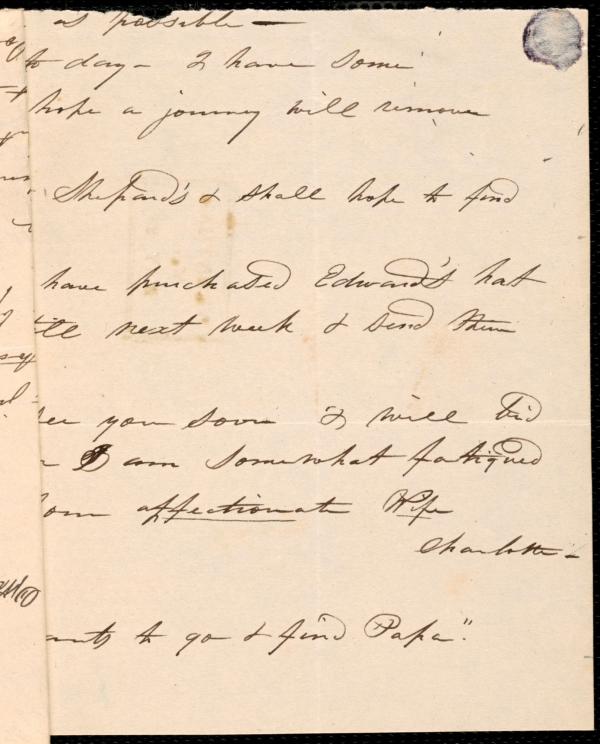 as possible —
to day - I have some
hope a journey will remove
Shepard's & shall hope to find
have purchased Edward's hat
till next week & send them
see you soon I will bid
I am somewhat fatigued
your affectionate Wife
Charlotte -
wants to go & find Papa".